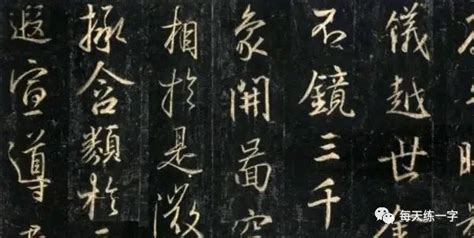 儀越世金
不鏡三千
象開啚空
相於是微
拯含類於
遐宣導
每天练一字